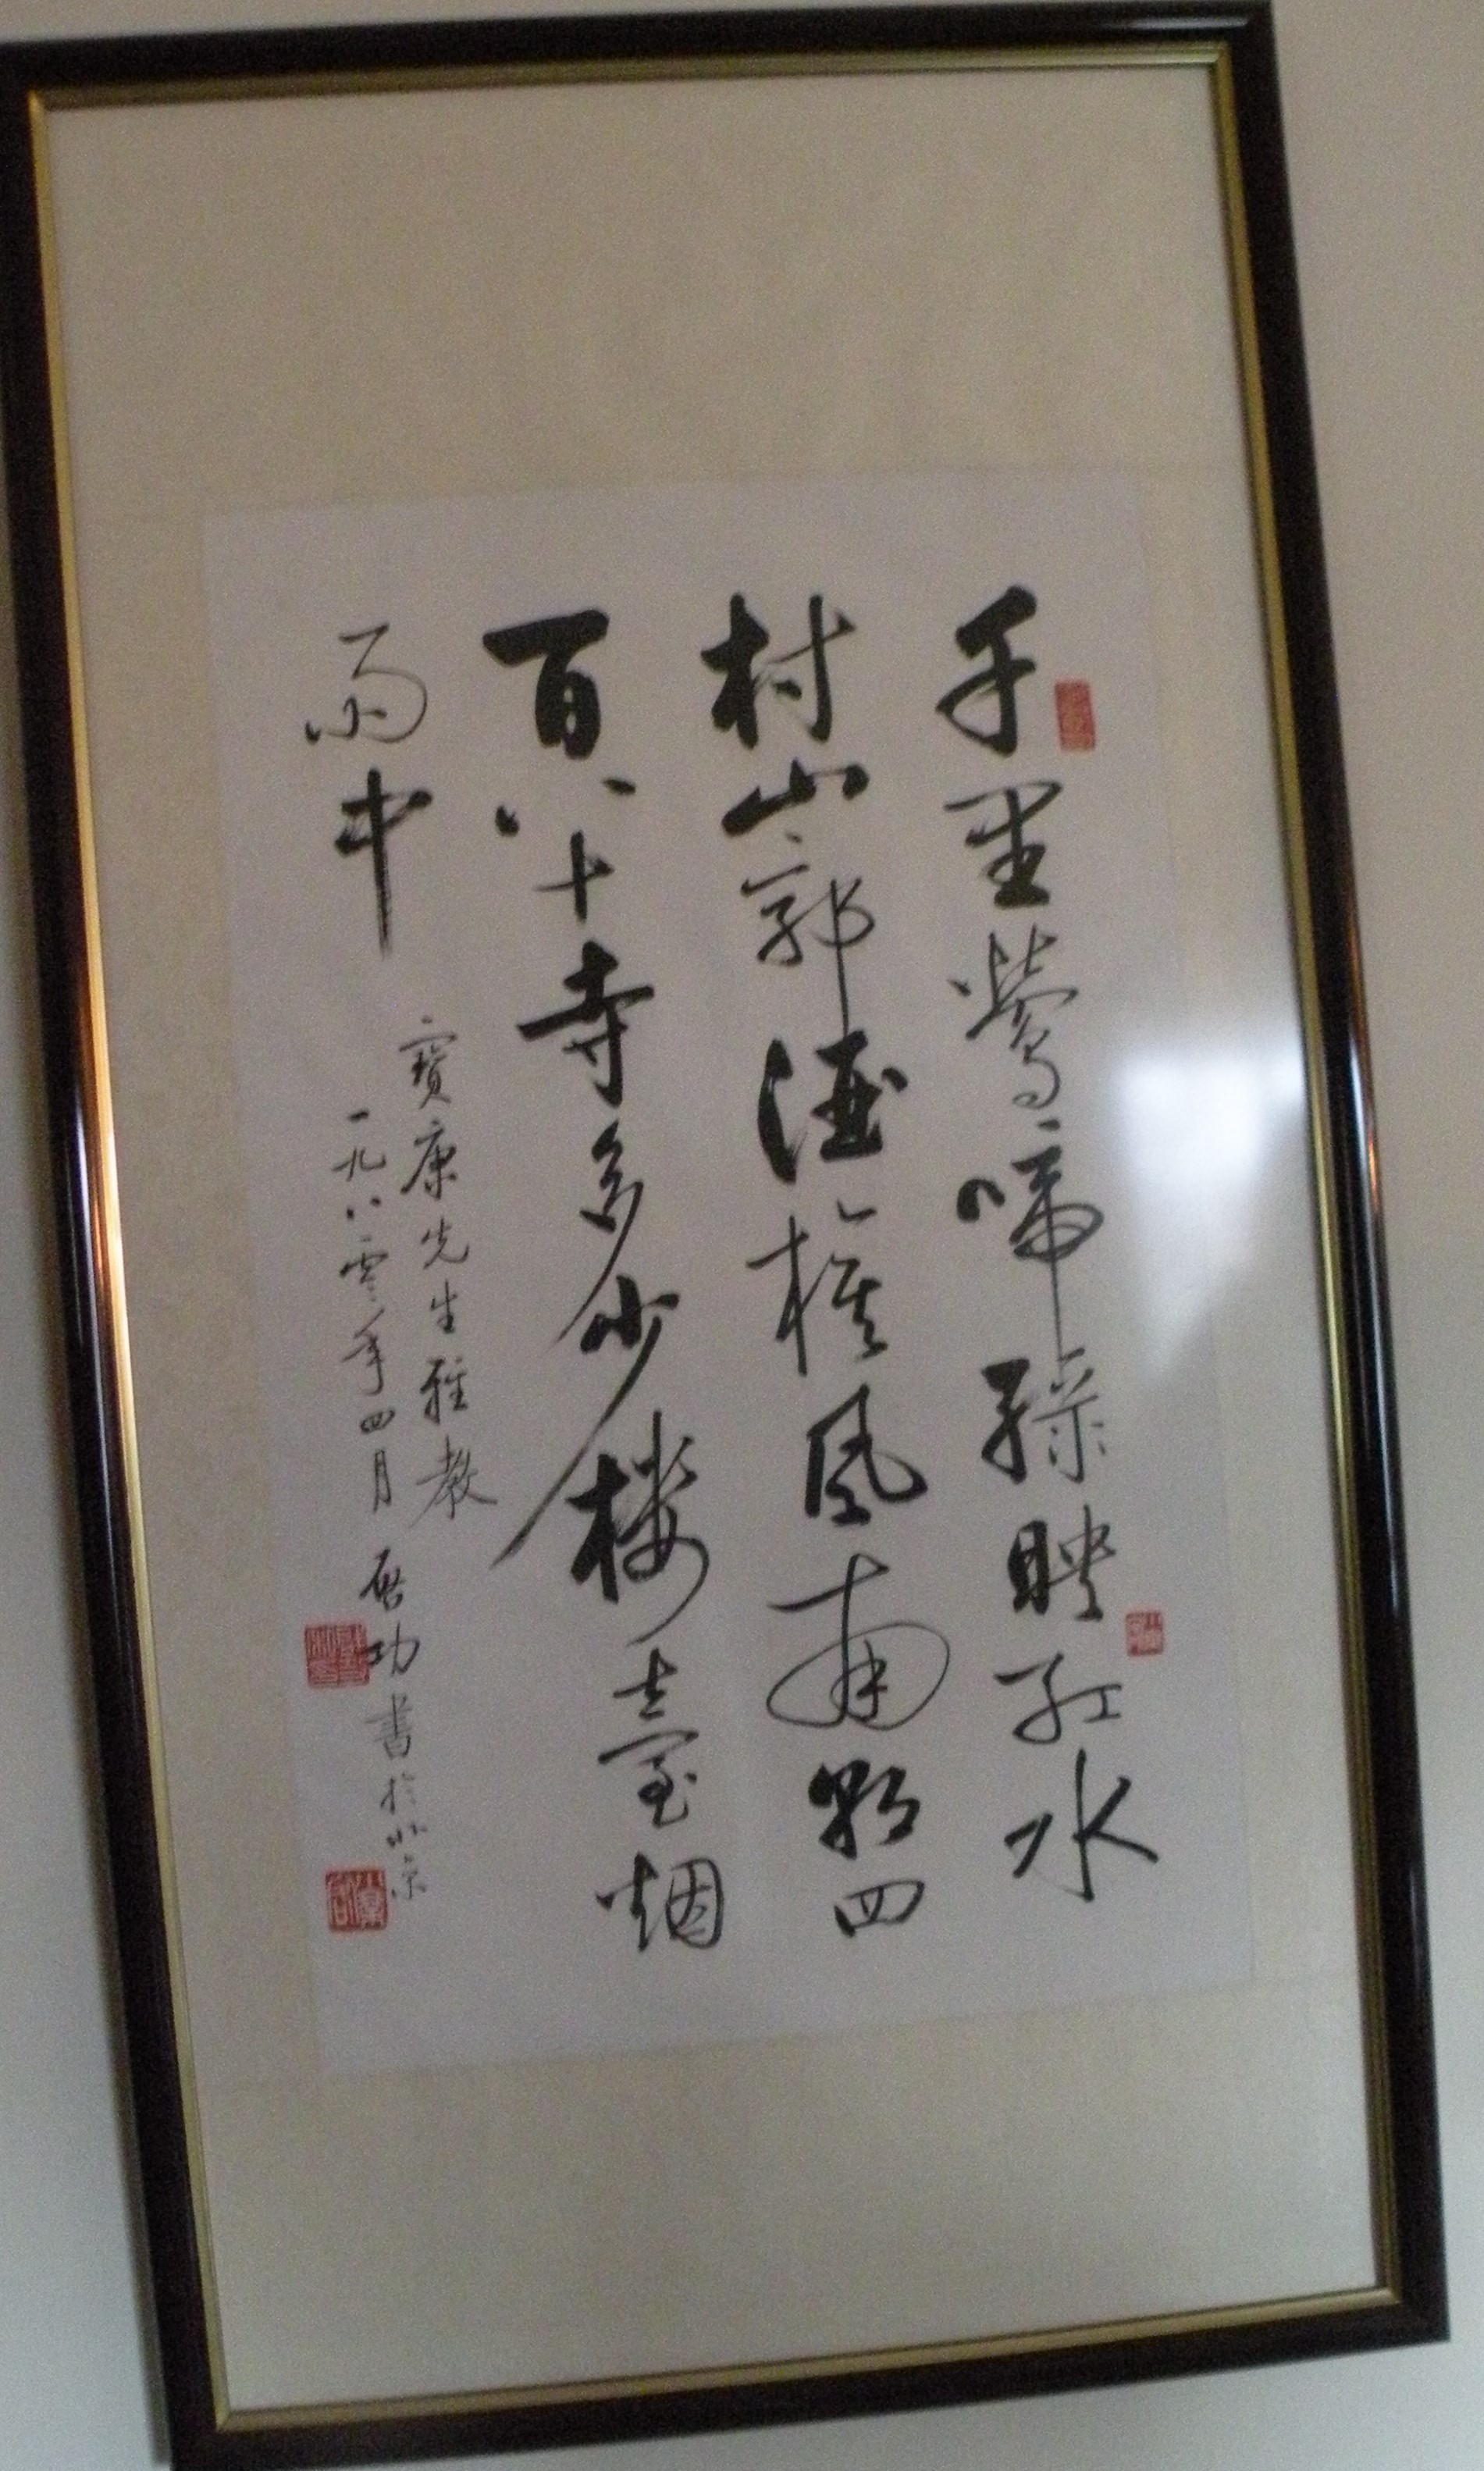 千里鶯啼綠映紅水
村山郭酒旗風南朝四
百八十寺多少楼臺烟
雨中
寶康先生雅教
一九八零年四月 啓功書於北京